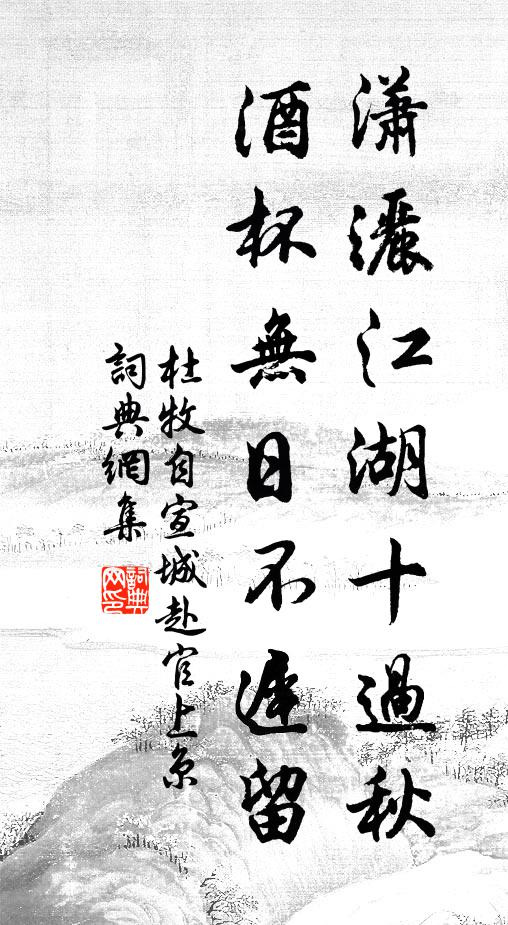 瀟灑江湖十過秋
酒杯無日不遲留
杜牧自宣城赴官上京
詞典網集
詞典網印